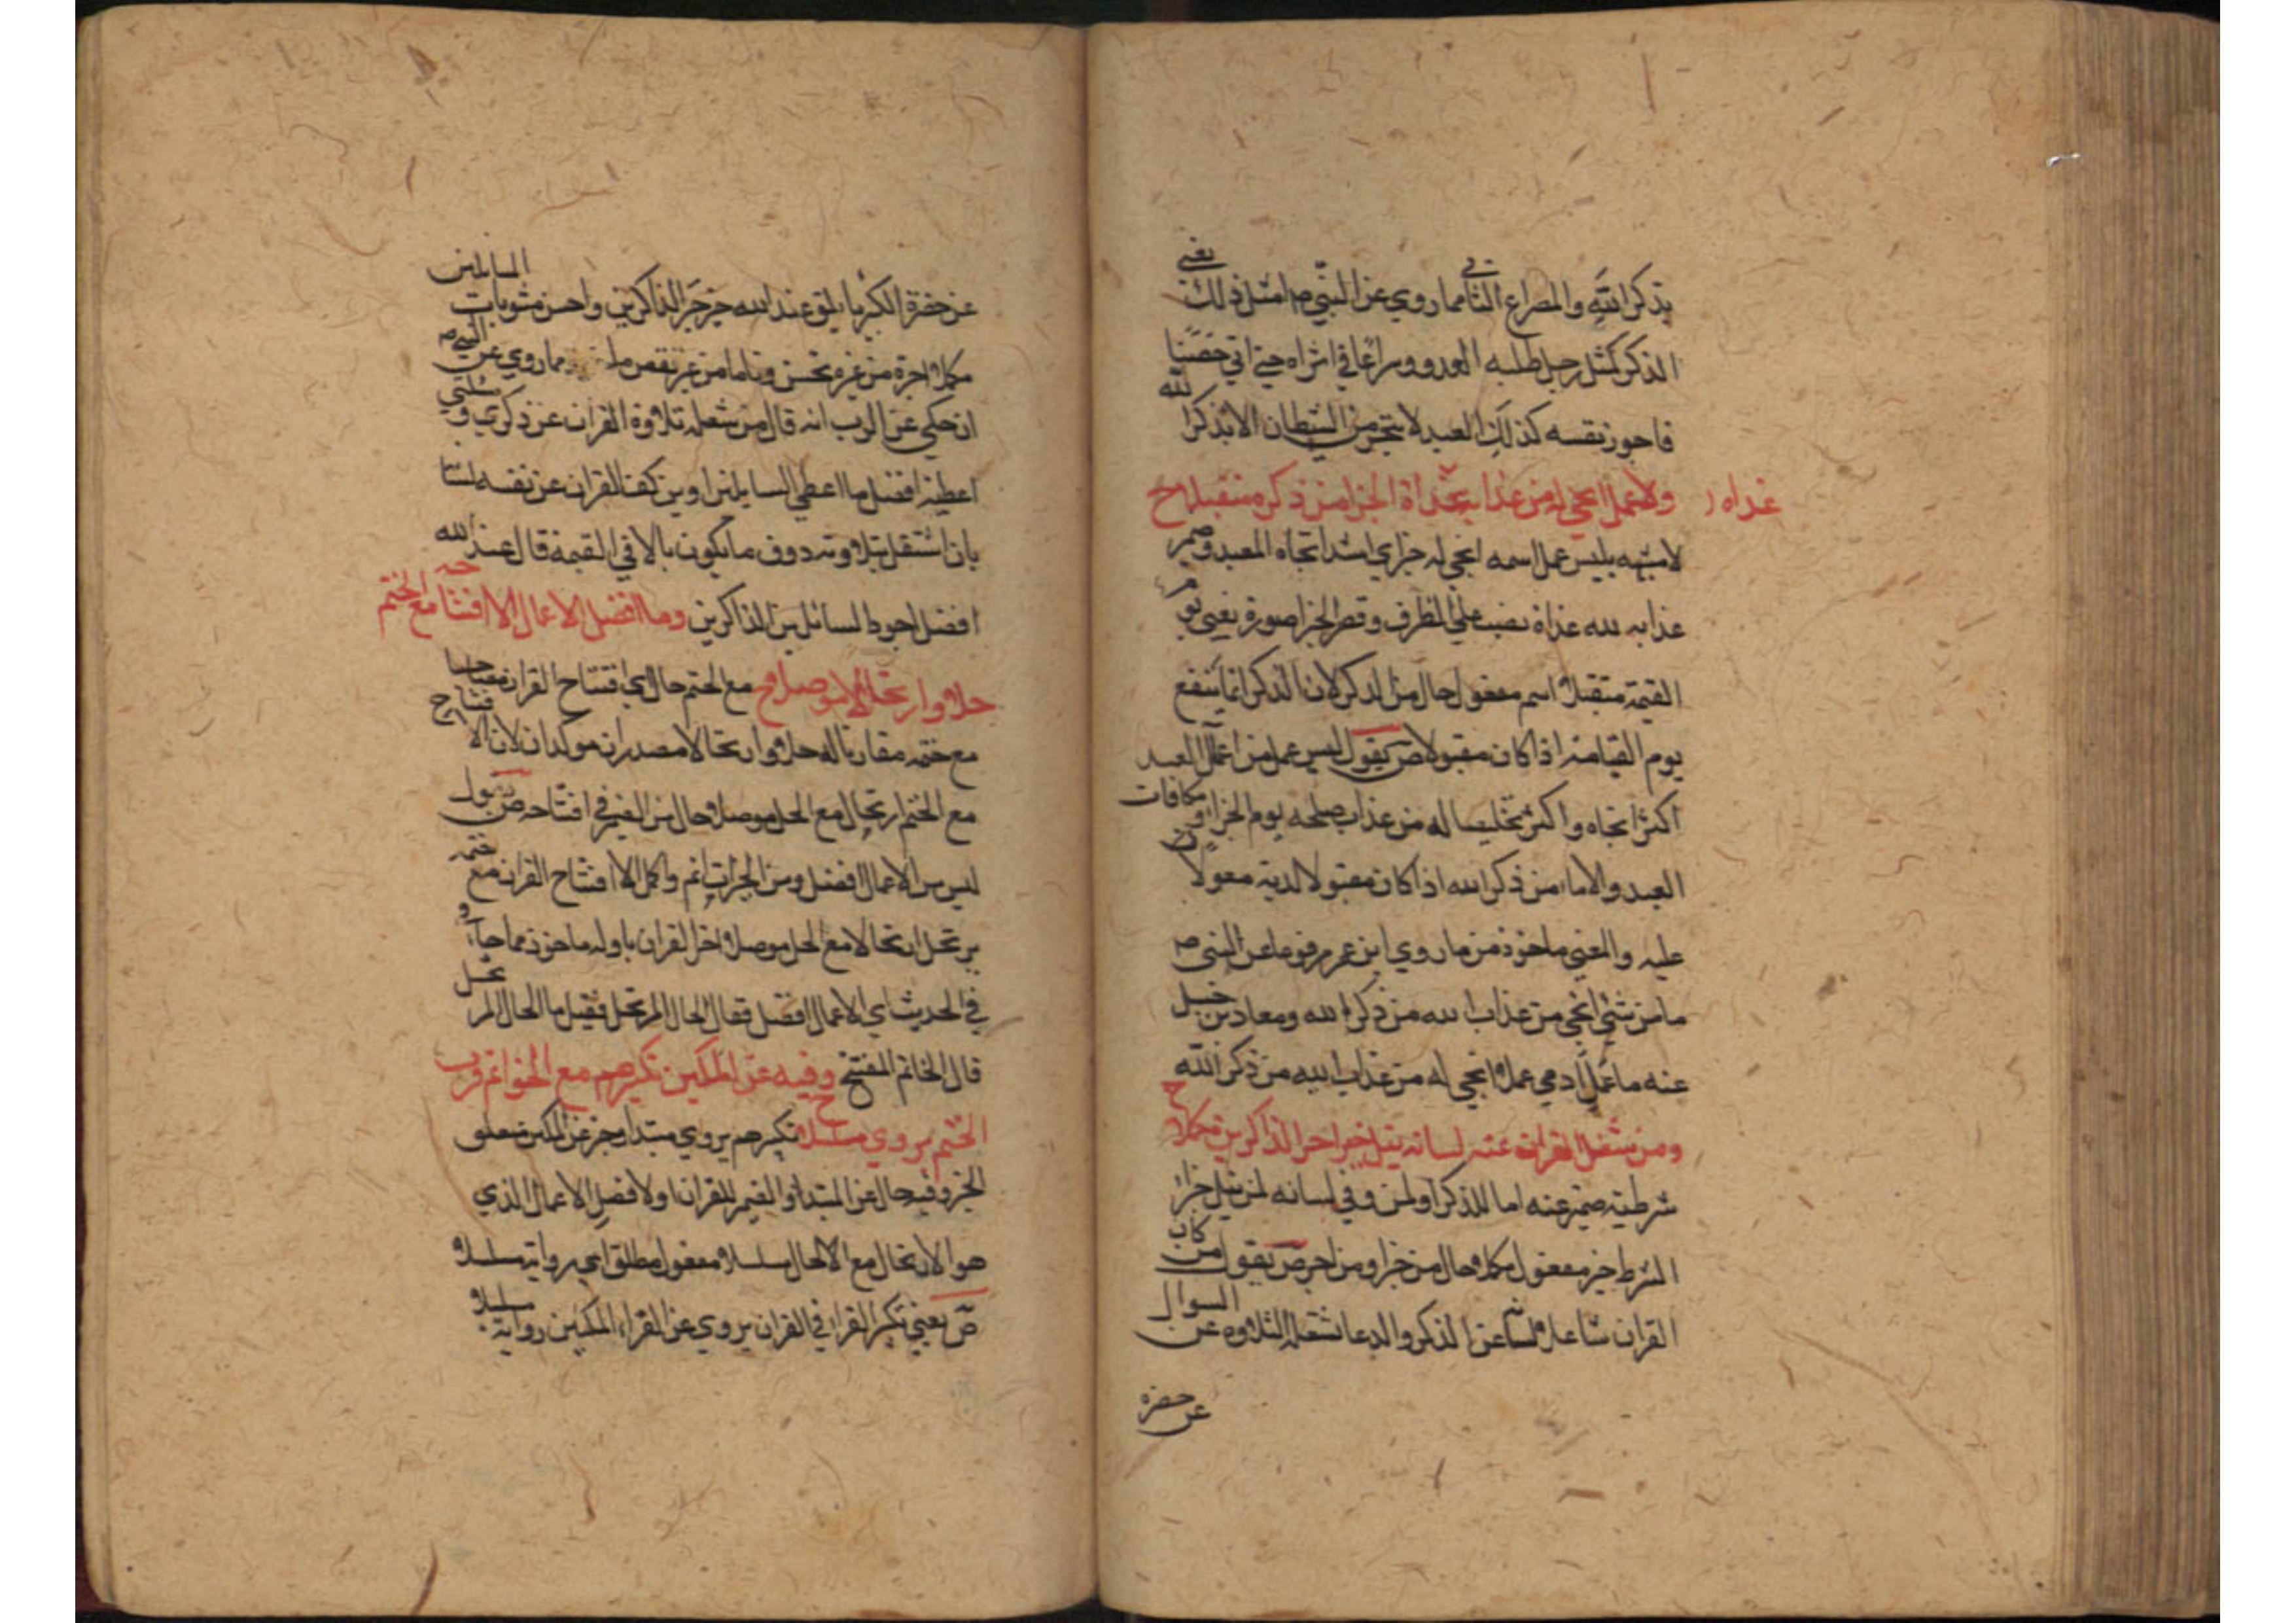 بذكر الله والمصراع الثاني مما روي عن النبي ص امثل ذلك يعني
الذكر كمثل رجل طلبه العدو وسراعا في اثراه حتى اتى حصنا
فاحرز نفسه كذلك العبد لا ينجو من الشيطان الا بذكر الله
ولا عمل انجى له من عذابه غداة الجزا من ذكره متقبلا ح
غداه ر
لا مشبهه بليس عمل اسمه انجى له خبره اي اشد انجاه العبد وضمير
عذابه لله غداة نصب على الظرف وقصر الجزا صورة يعني يوم
القيمة متقبلا اسم مفعول حال من الذكر لان الذكر انما ينفع
يوم القيامة اذا كان مقبولا ص يقول ليس عمل من اعمال العبد
اكثر انجاه واكثر تخليصا له من عذاب يوم الجزا ومكافات
العبد والاما من ذكر الله اذا كان مقبولا لديه معولا
عليه والمعنى ماخوذ من ما روي ابن عمر مرفوعا عن النبي ص
ما من شئ انجى من عذاب الله من ذكر الله ومعاذ بن جبل
عنه ما عمل آدمي عملا انجى له من عذاب الله من ذكر الله
ومن شغل القران عنه لسانه ينل خير اجر الذاكرين مكملا ح
شرطية ضمير عنه اما للذكر او لمن وفي لسانه لمن ينل جزا
الشرط خير مفعول مكملا حال من خير او من اجر ص يقول من كان
القران شاغلا لسانه عن الذكر والدعا شغله التلاوه عن السوال
عن حضره
عن حضرة الكبريا يلق عند الله خير اجر الذاكرين واحسن مثوبات السايلين
مكملا اجره من غيره بحسن وتاما من غير نقص مما روي عن النبي ص
ان حكي عن الرب انه قال من شغله تلاوة القران عن ذكري و مسئلتي
اعطيته افضل ما اعطي السايلين اوين كف القران عن نفسه لسانا
بان اشتغل بتلاوته دوف ما يكون بالا في القيمة قال عند الله
افضل اجور السائلين الذاكرين وما افضل الاعمال الا افتتاحه مع الختم
حلا وارتحالا موصلا ح مع الختم حال اي افتتاح القران مصاحبا
مع ختمه مقارنا له حلا وارتحالا مصدران موكدان لان الافتتاح
مع الختم ارتحال مع الحل موصلا حال من الضمير في افتتاحه ص يقول
ليس من الاعمال افضل ومن الخيرات اتم واكمل الا افتتاح القران مع ختمه
يرتحل ارتحالا مع الحل موصلا اخر القران باوله ماخوذ مما جاء و
في الحديث اي الاعمال افضل فقال الحال المرتحل فقيل ما الحال المرتحل
قال الخاتم المفتتح وفيه عن المكين تكبيرهم مع الخواتم قرب
الختم يروي مسلسلا ح تكبيرهم يروي مبتدا وخبر عن المكين متعلق
الخبر وفيه حال عن المبتدا والضمير للقران او لافضل الاعمال الذي
هو الارتحال مع الاحلال مسلسلا مفعول مطلق اي رواية مسلسلا
ص يعني تكبير القرا في القران يروي عن القراء المكين رواية مسلسلا